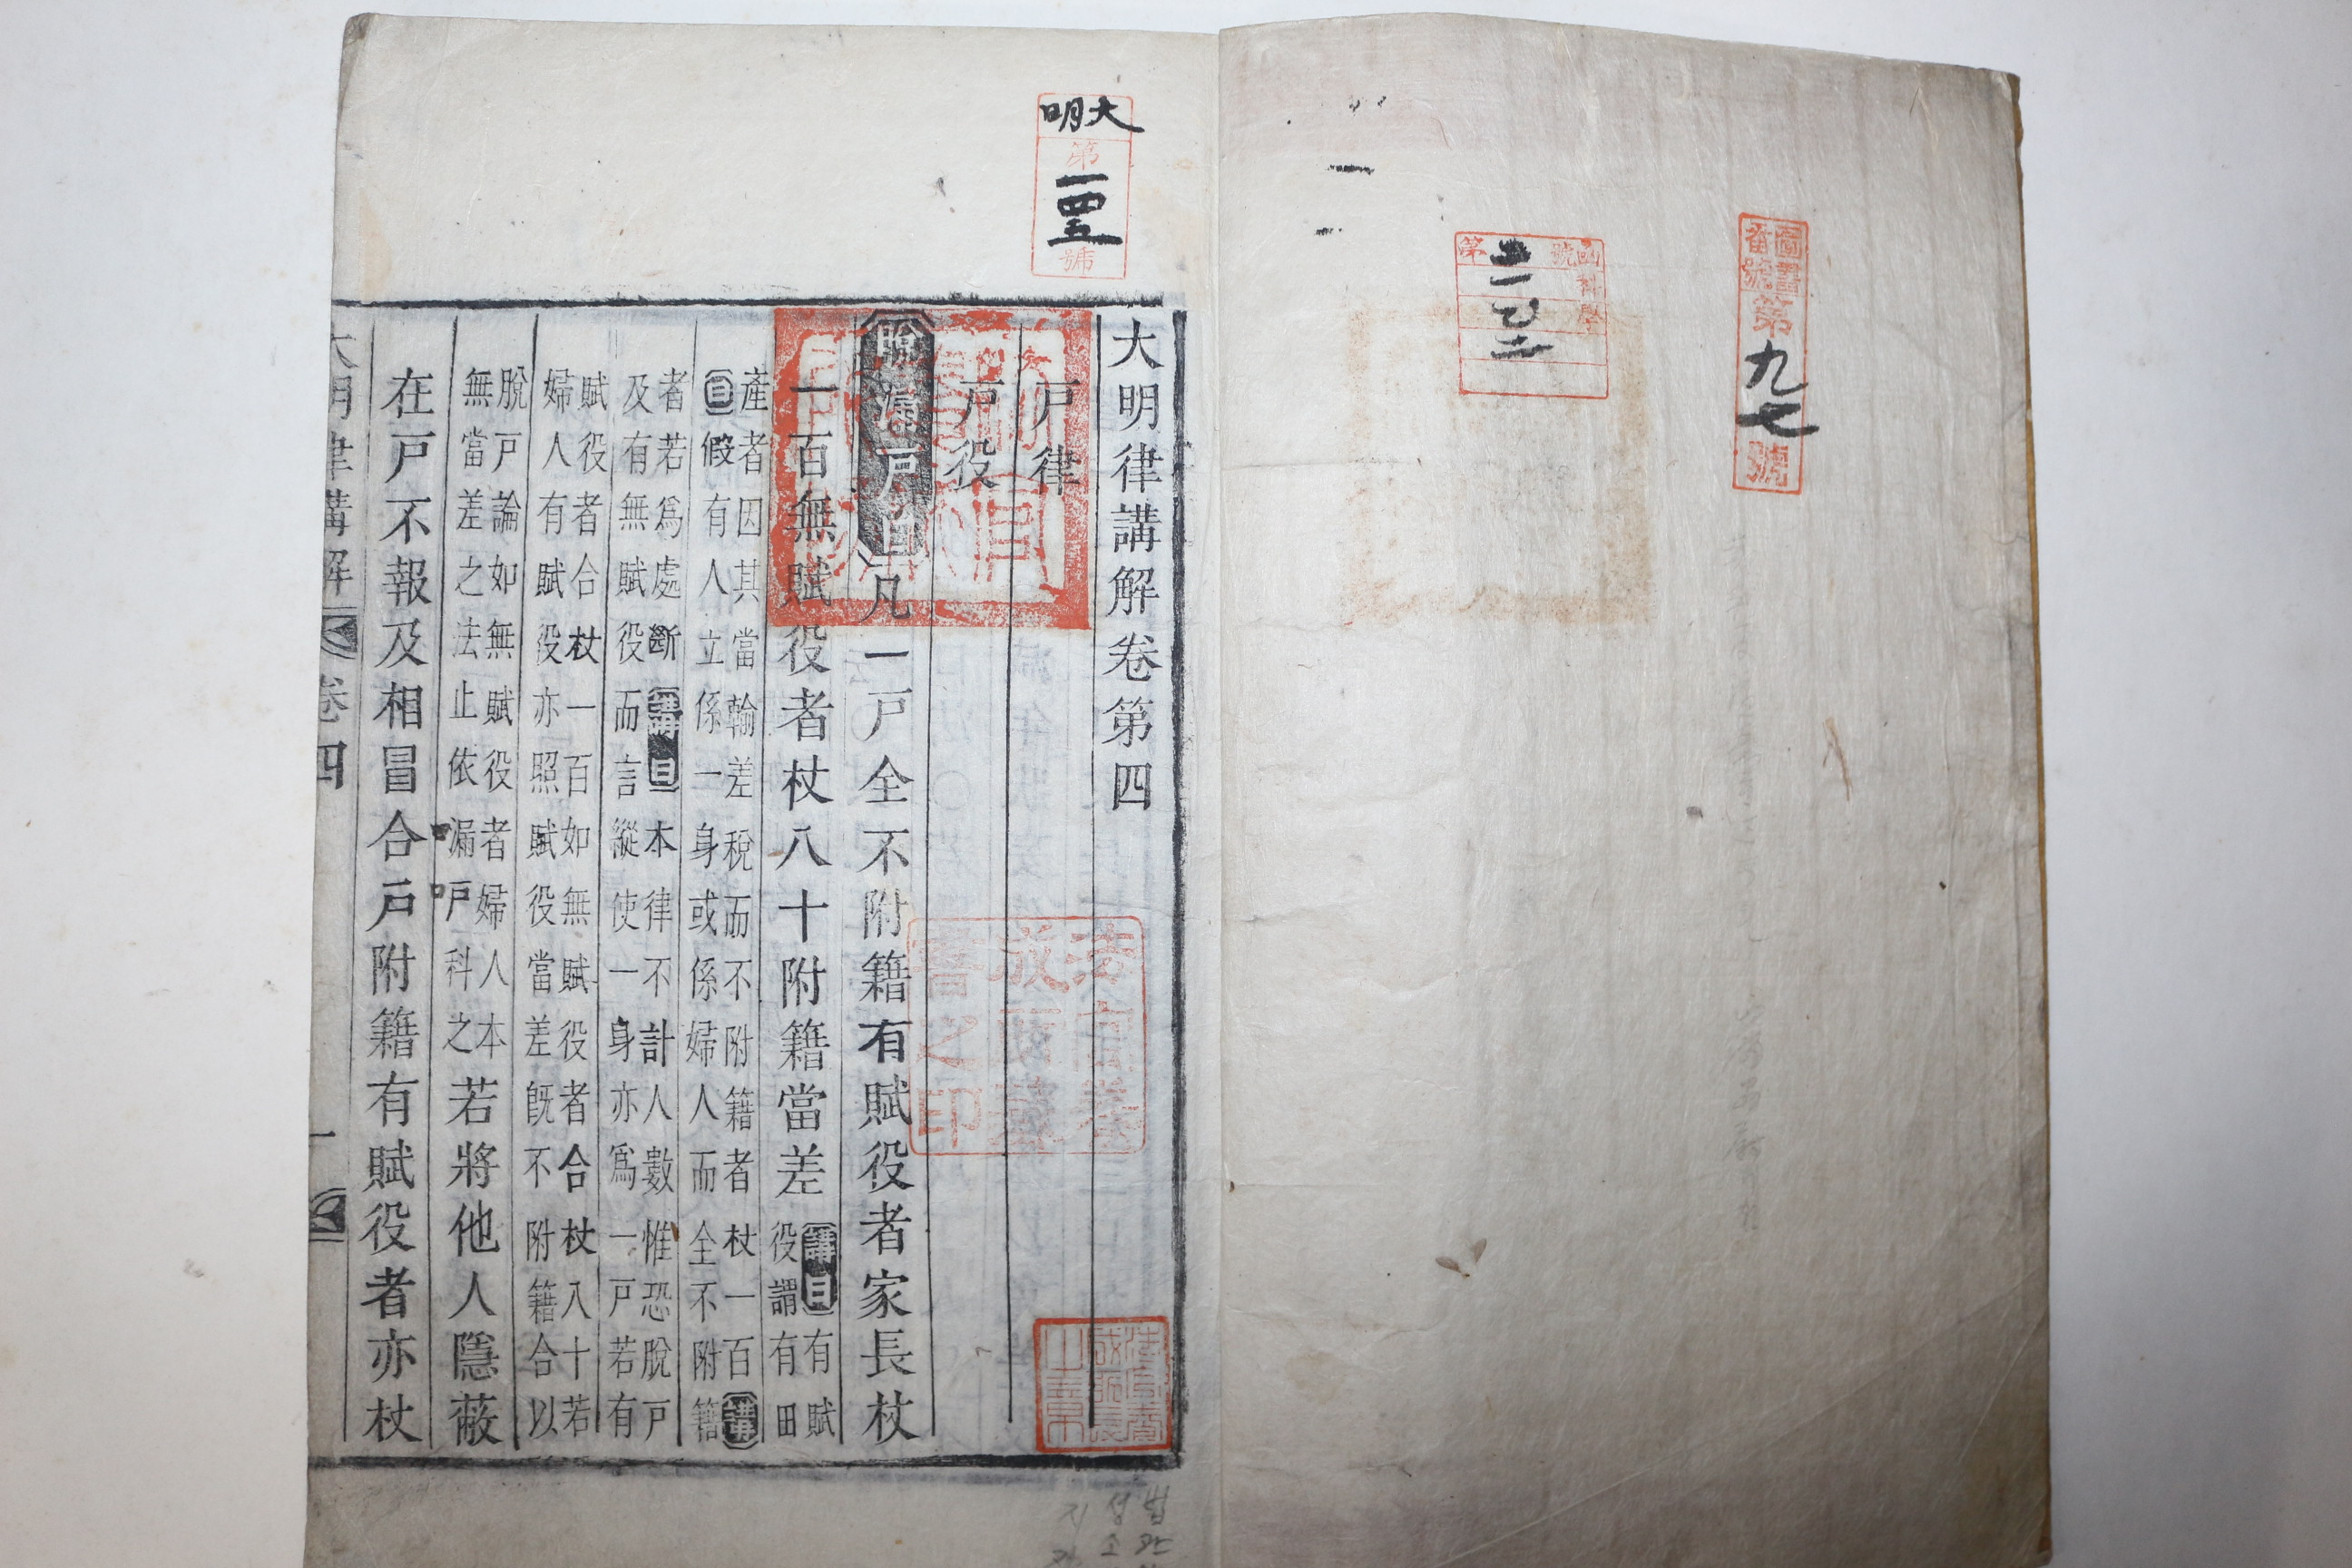 圖書番號第九七號
大明
第一四五號
大明律講解卷第四
戶律
戶役
脫漏戶口凡一戶全不附籍有賦役者家長杖
一百無賦役者杖八十附籍當差
講曰有賦
役謂有田
產者因其當輸差稅而不附籍者杖一百講
曰假有人立係一身或係婦人而全不附籍
者若爲處斷講解曰本律不計人數惟恐脫戶
及有無賦役而言縱使一身亦爲一戶若有
賦役者合杖一百如無賦役者合杖八十若
婦人有賦役亦照賦役當差旣不附籍合以
脫戶論如無賦役者婦人本
無當差之法止依漏戶科之
若將他人隱蔽
在戶不報及相冒合戶附籍有賦役者亦杖
大明律講解 卷四 一
法官養成所藏書之印